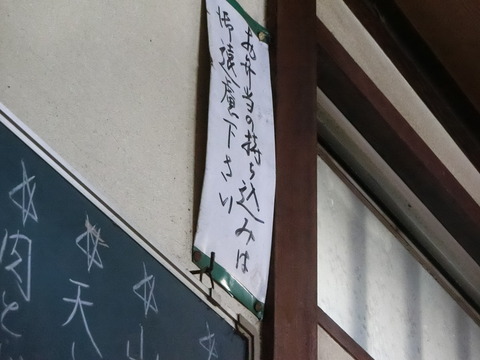 お弁当の持ち込みは
御遠慮下さい
☆肉と
☆天
☆山
☆